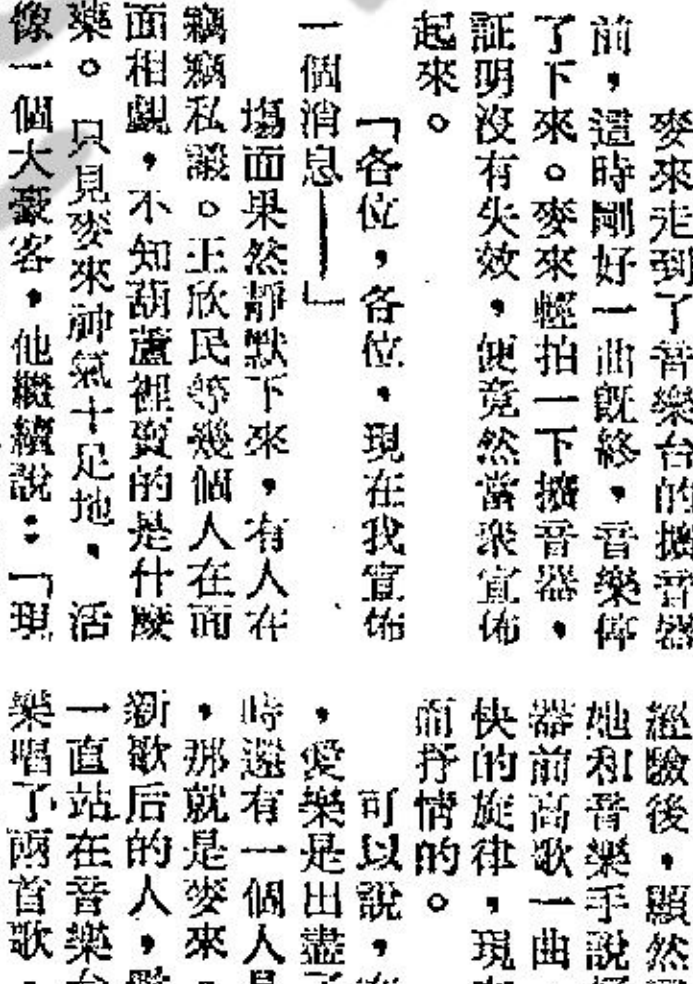 麥來走到了音樂台的擴音器
前，這時剛好一曲既終，音樂停
了下來。麥來輕拍一下擴音器，
証明沒有失效，便竟然當眾宣佈
起來。
「各位，各位，現在我宣佈
一個消息——」
場面果然靜默下來，有人在
竊竊私議。王欣民等幾個人在面
面相覷，不知葫蘆裡賣的是什麼
藥。只見麥來神氣十足地，活
像一個大豪客，他繼續說：「現
經驗後，顯然
她和音樂手說
器前高歌一曲
快的旋律，現
而抒情的。
可以說，
，愛樂是出盡了
時還有一個人是
，那就是麥來。
新歌后的人，
一直站在音樂台
樂唱了兩首歌，